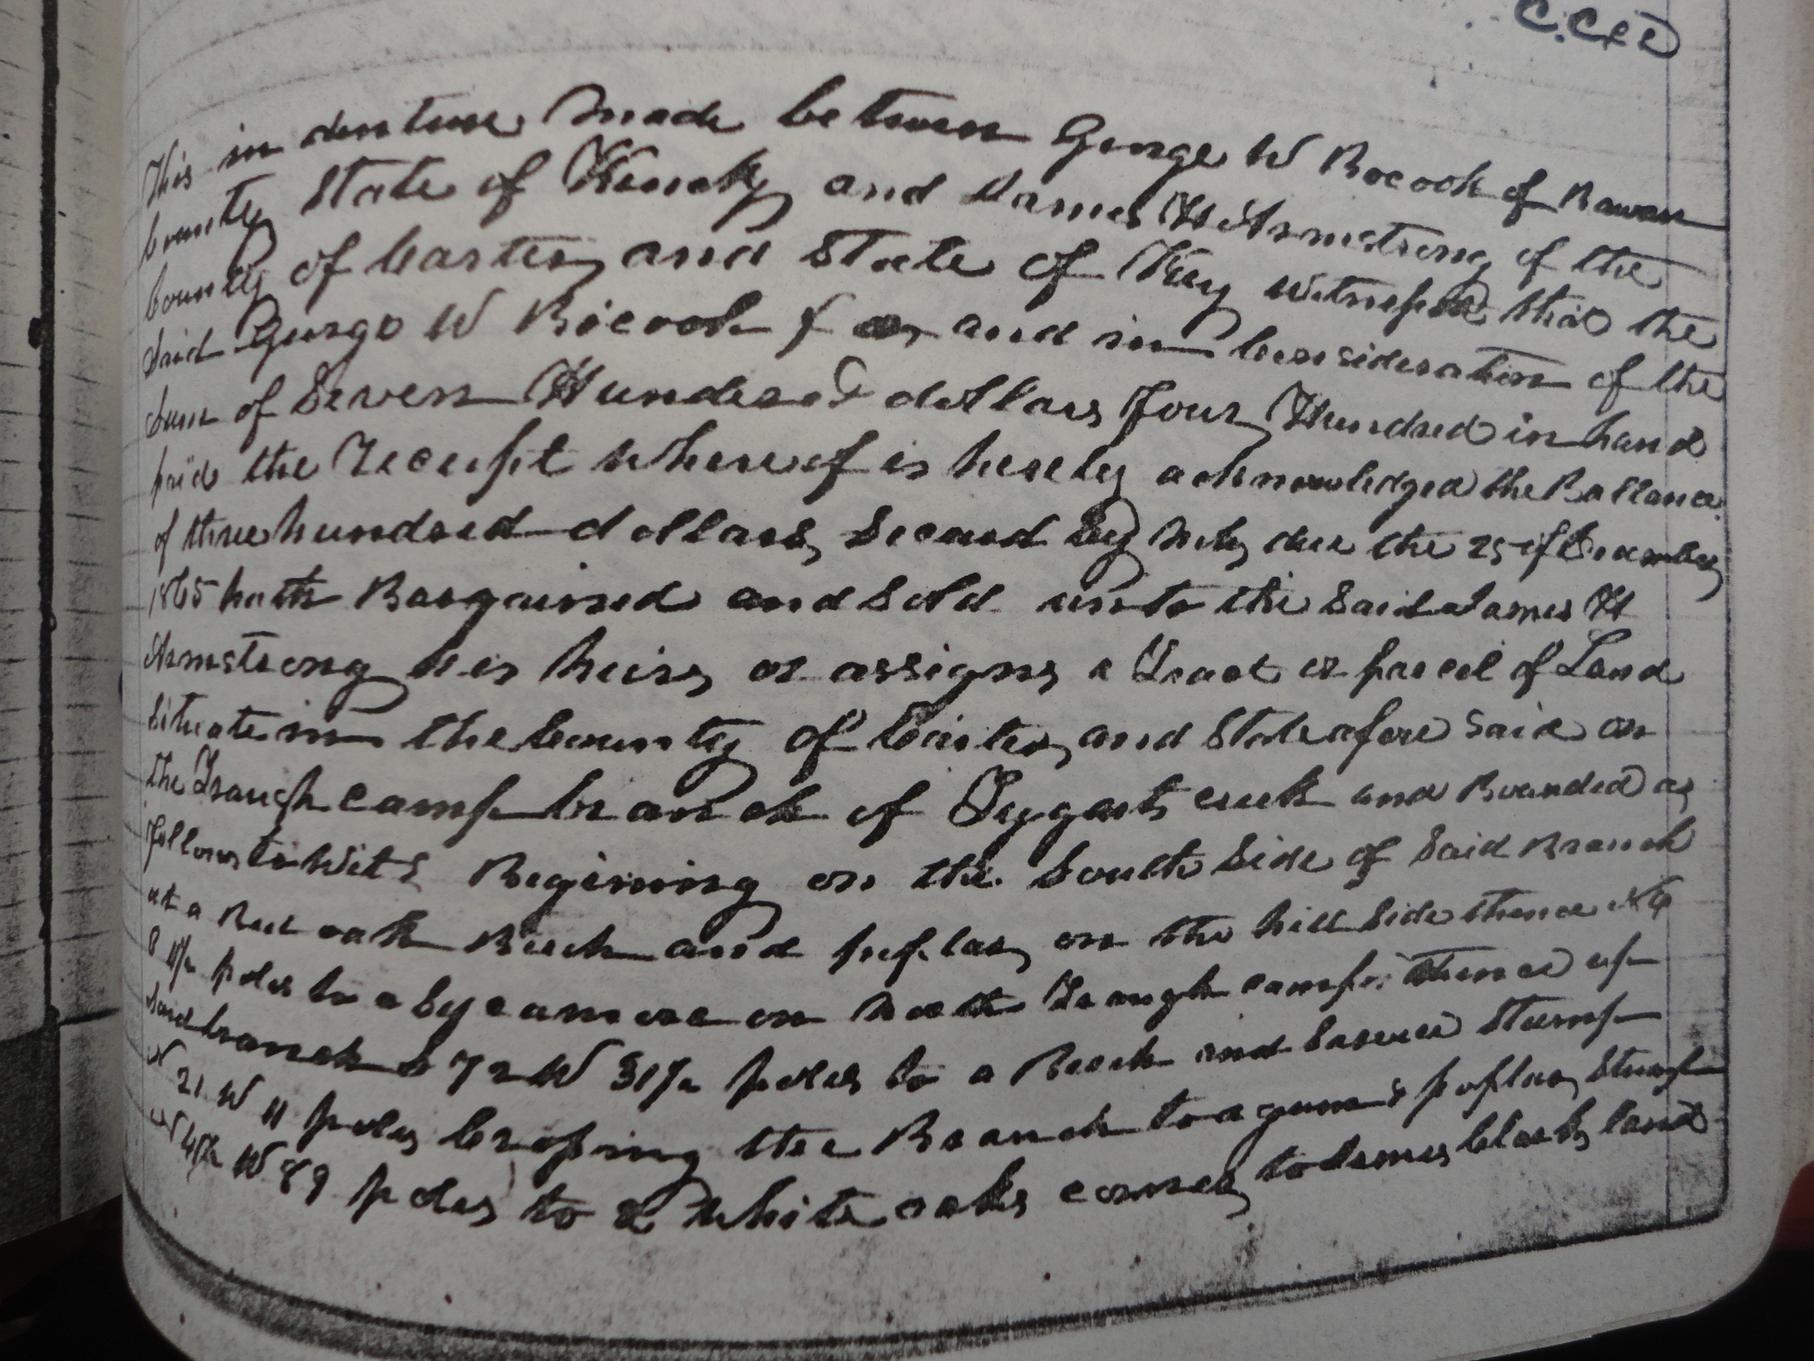 C.C.C.
This in denture Made between George W Bocook of Rowan
County State of Kencky and James H Armstrong of the
County of Carter and State of Key witnesseth that the
Said George W Bocook for and in Consideration of the
Sum of Seven Hundred dollars four Hundred in hand
paid the Receipt whereof is hereby acknowledged the Ballance
of three hundred dollars, Secured by note, due the 25 of December
1865 hath Bargained and Sold unto the Said James H
Armstrong his heirs or assigns a Tract or parcel of Land
Situate in the County of Carter, and State afore Said on
the Trough camp branch of Tygarts creek and Bounded as
follows towit Begining on the South Side of Said Branch
at a oak Beech and poplar, on the hill Side thence
8 1/2 poles to a Sycamore on Trough camp: thence up
Said branch S 72 W 31 1/2 poles to a Beech and Stump
N 21 W 11 poles, Crossing the Branch to a gum & poplar, Stump
N W 89 poles to 2 White oaks corner, to James Clark, land